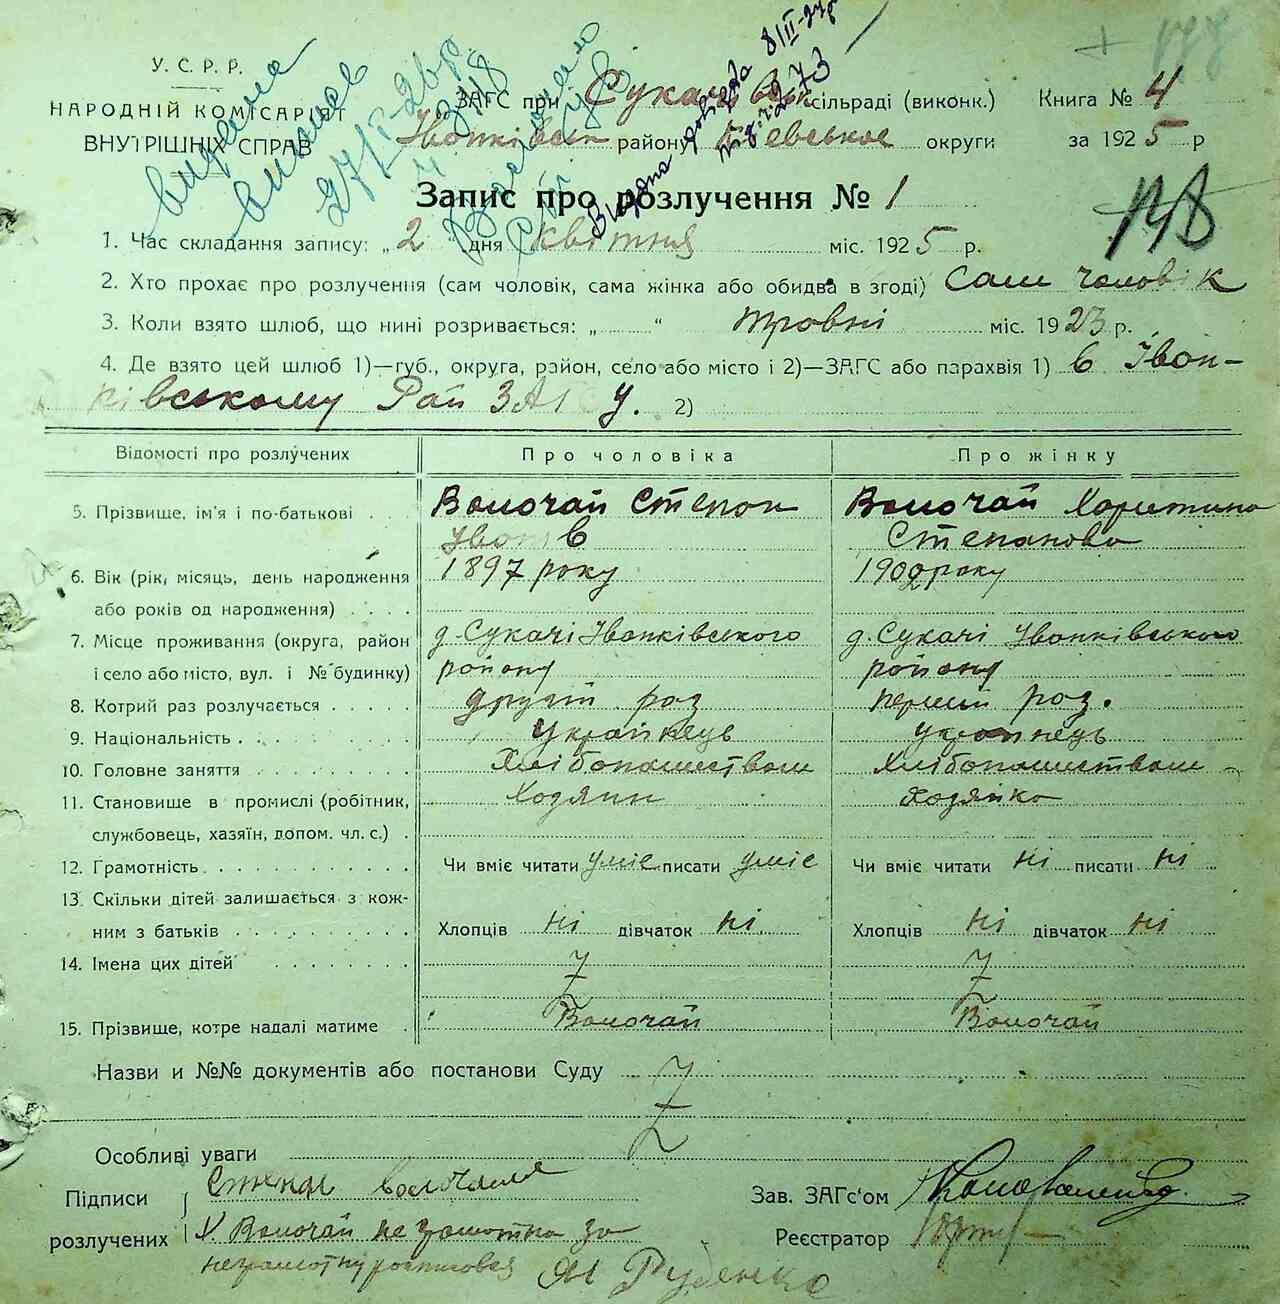 У. С. Р. Р.
НАРОДНІЙ КОМІСАРІЯТ
ВНУТРІШНІХ СПРАВ
ЗАГС при Сукачівськ сільраді (виконк.) Книга № 4
Іванківськ району Київської округи за 1925 р
178
Запис про розлучення № 1
1. Час складання запису: „ 2 " дня квітня міс. 1925 р.
2. Хто прохає про розлучення (сам чоловік, сама жінка або обидва в згоді) Сам чоловік
3. Коли взято шлюб, що нині розривається: „ " травні міс. 1923 р.
4. Де взято цей шлюб 1)—губ., округа, район, село або місто і 2)—ЗАГС або парахвія 1) в Іван-
ківському Рай ЗАГСу. 2)
Відомості про розлучених Про чоловіка Про жінку
5. Прізвище, ім'я і по-батькові Волочай Степан Волочай Харитина
Іванів Степанова
6. Вік (рік, місяць, день народження 1897 року 1902 року
або років од народження)
7. Місце проживання (округа, район д. Сукачі Іванківського д. Сукачі Іванківського
і село або місто, вул. і № будинку) району району
8. Котрий раз розлучається другий раз перший раз.
9. Національність українець українець
10. Головне заняття Хлібопашеством Хлібопашеством
11. Становище в промислі (робітник, Хазяин Хазяйка
службовець, хазяїн, допом. чл. с.)
12. Грамотність Чи вміє читати уміє писати уміє Чи вміє читати ні писати ні
13. Скільки дітей залишається з кож-
ним з батьків Хлопців ні дівчаток ні Хлопців ні дівчаток ні
14. Імена цих дітей
15. Прізвище, котре надалі матиме Волочай Волочай
Назви и №№ документів або постанови Суду
Особливі уваги
Підписи Степан Волочай Зав. ЗАГс'ом
розлучених Х. Волочай неграмотна за Реєстратор
неграмотну росписався Руденко